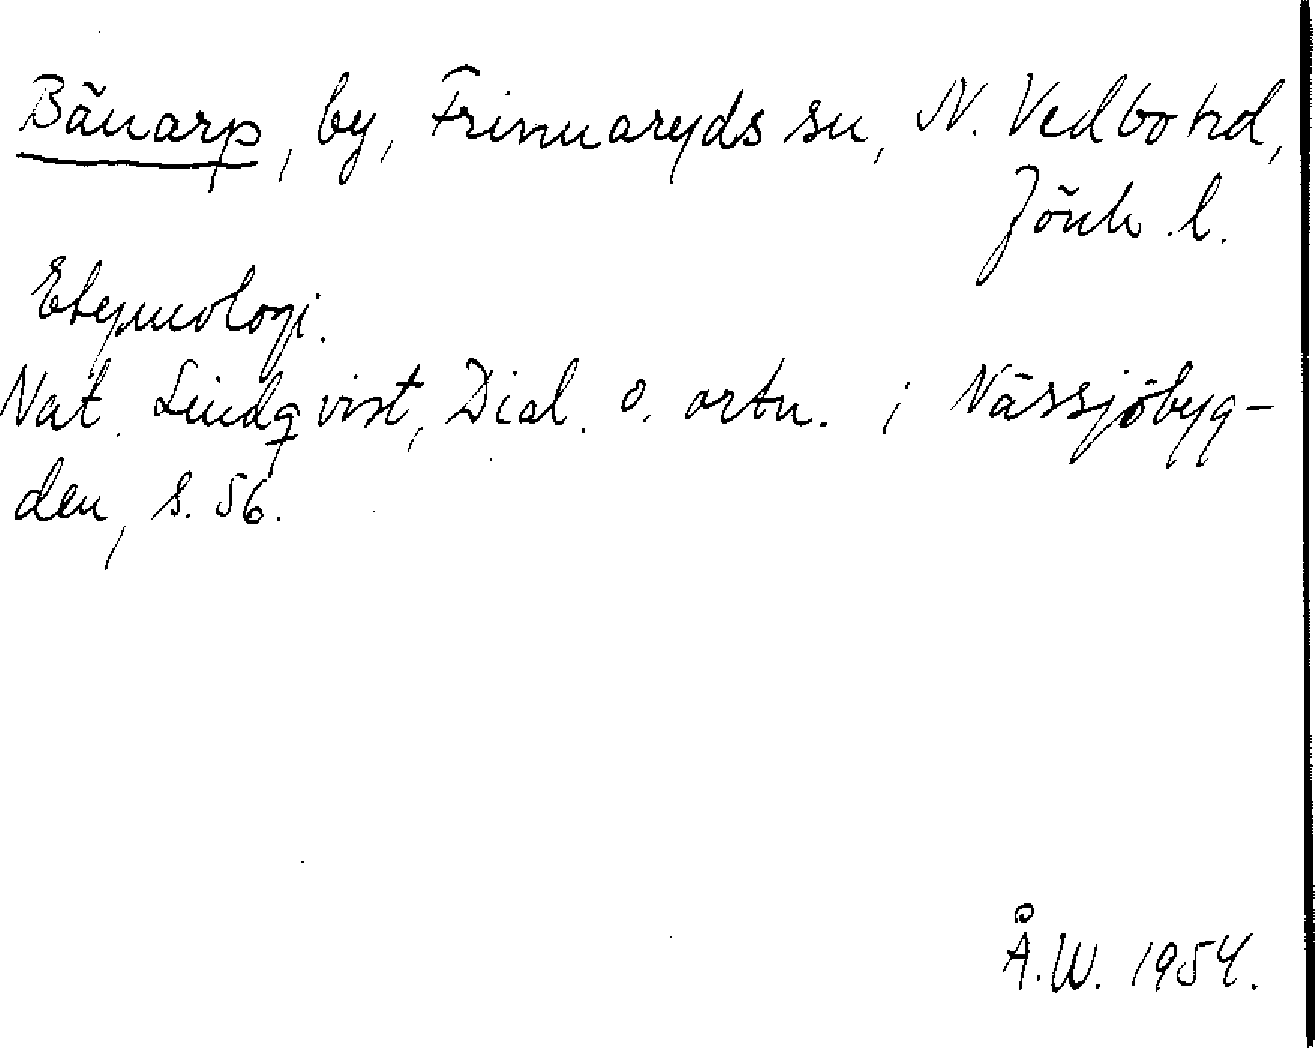 Bänarp, by, Frinnaryds sn, N. Vedbo hd,
Jönk. l.
Etymologi.
Nat. Lindqvist, Dial. o. ortn. i Nässjöbyg-
den, s. 56.
Å.W. 1954.